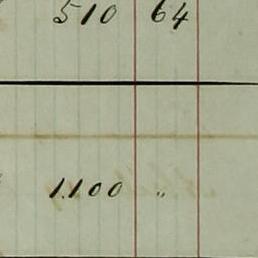 510 64
1.100 "